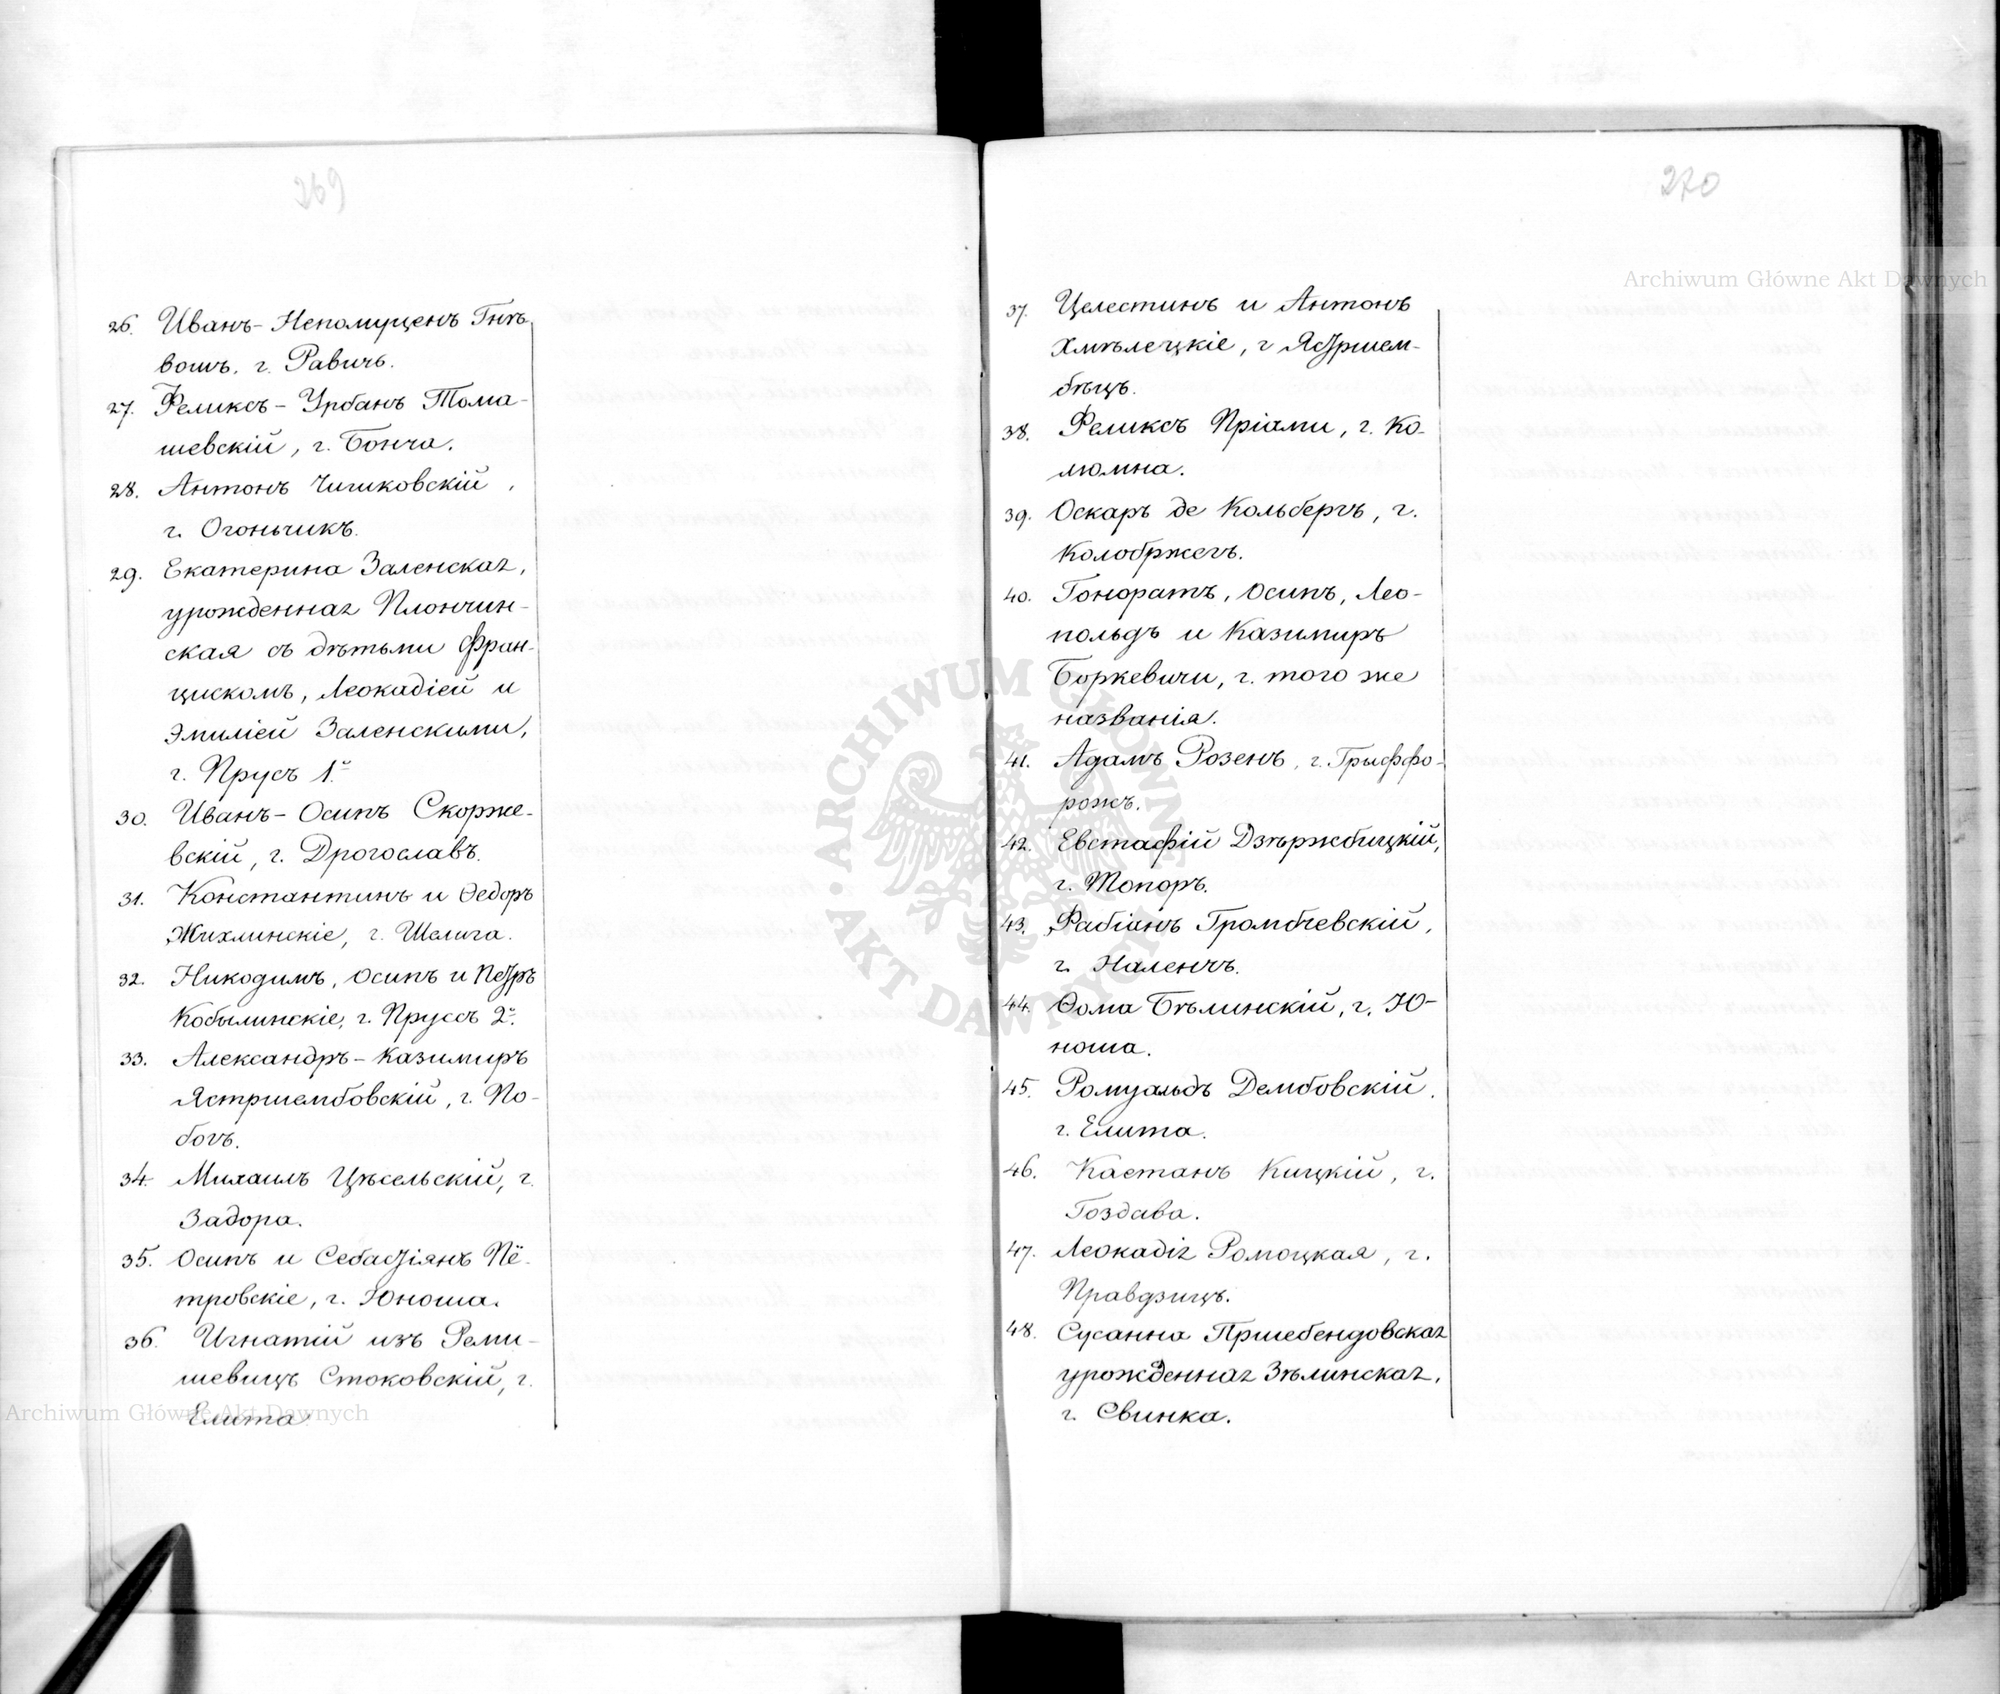 269
26. Иванъ-Непомуценъ Гнѣ-
вошъ. г. Равичъ.
27. Феликсъ-Урбанъ Тома-
шевскій, г. Бонча.
28. Антонъ Чишковскій,
г. Огоньчикъ.
29. Екатерина Заленская,
урожденная Плончин-
ская съ дѣтьми Фран-
цискомъ, Леокадіей и
Эмиліей Заленскими,
г. Прусъ 1й
30. Иванъ-Осипъ Скорже-
вскій, г. Дрогославъ.
31. Константинъ и Ѳедоръ
Жихлинскіе, г. Шелига.
32. Никодимъ, Осипъ и Петръ
Кобылинскіе, г. Пруссъ 2й.
33. Александръ-Казимиръ
Ястршембовскій, г. По-
богъ.
34. Михаилъ Цѣсельскій, г.
Задора.
35. Осипъ и Себастіянъ Пё-
тровскіе, г. Юноша.
36. Игнатій изъ Реми-
шевицъ Стоковскій, г.
Елита
Archiwum Główne Akt Dawnych
270
Archiwum Główne Akt Dawnych
37. Целестинъ и Антонъ
Хмѣлецкіе, г Ястршем-
бѣцъ.
38. Феликсъ Пріами, г. Ко-
люмна.
39. Оскаръ де Кольбергъ, г.
Колобржегъ.
40. Гоноратъ, Осипъ, Лео-
польдъ и Казимиръ
Боркевичи, г. того же
названія.
41. Адамъ Розенъ, г. Грыффо-
рожъ.
42. Евстафій Дзѣржбицкій,
г. Топоръ.
43. Фабіанъ Громбчевскій,
г. Наленчъ.
44. Ѳома Бѣлинскій, г. Ю-
ноша.
45. Ромуальдъ Дембовскій.
г. Елита.
46. Каетанъ Кицкій, г.
Гоздава.
47. Леокадія Ромоцкая, г.
Правдзицъ.
48. Сусанна Пршебендовская
урожденная Зѣлинская,
г. Свинка.
ARCHIWUM GŁÓWNE AKT DAWNYCH